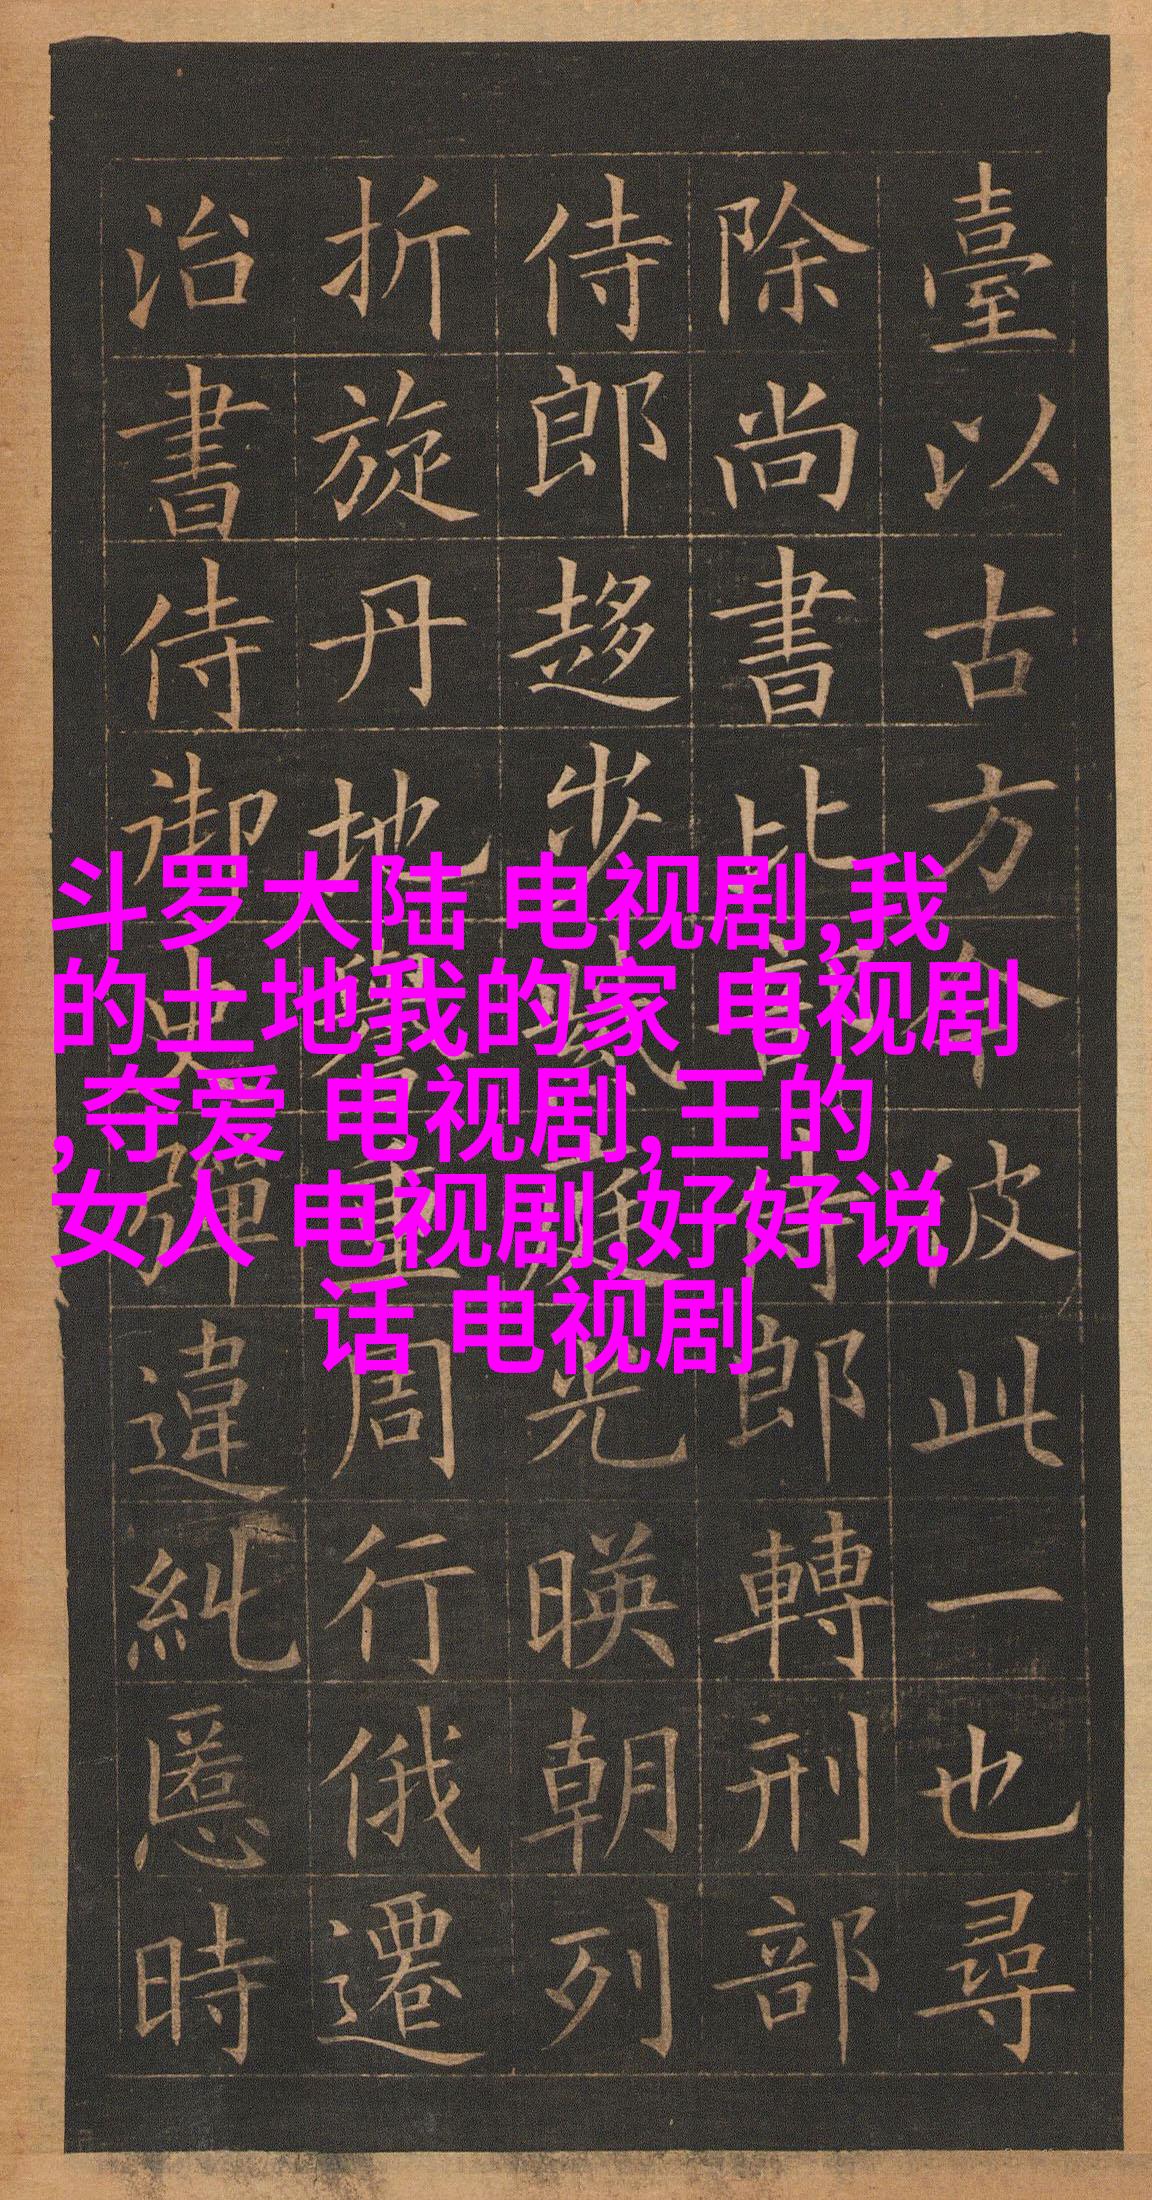 臺以古方今彼此一也尋
除尚書比部侍郎轉刑部
侍郎趍步紫庭光暎朝列
折旋丹地譽重周行俄遷
治書侍御史彈違糺慝時
斗罗大陆 电视剧,我
的土地我的家 电视剧
,夺爱 电视剧,王的
女人 电视剧,好好说
话 电视剧